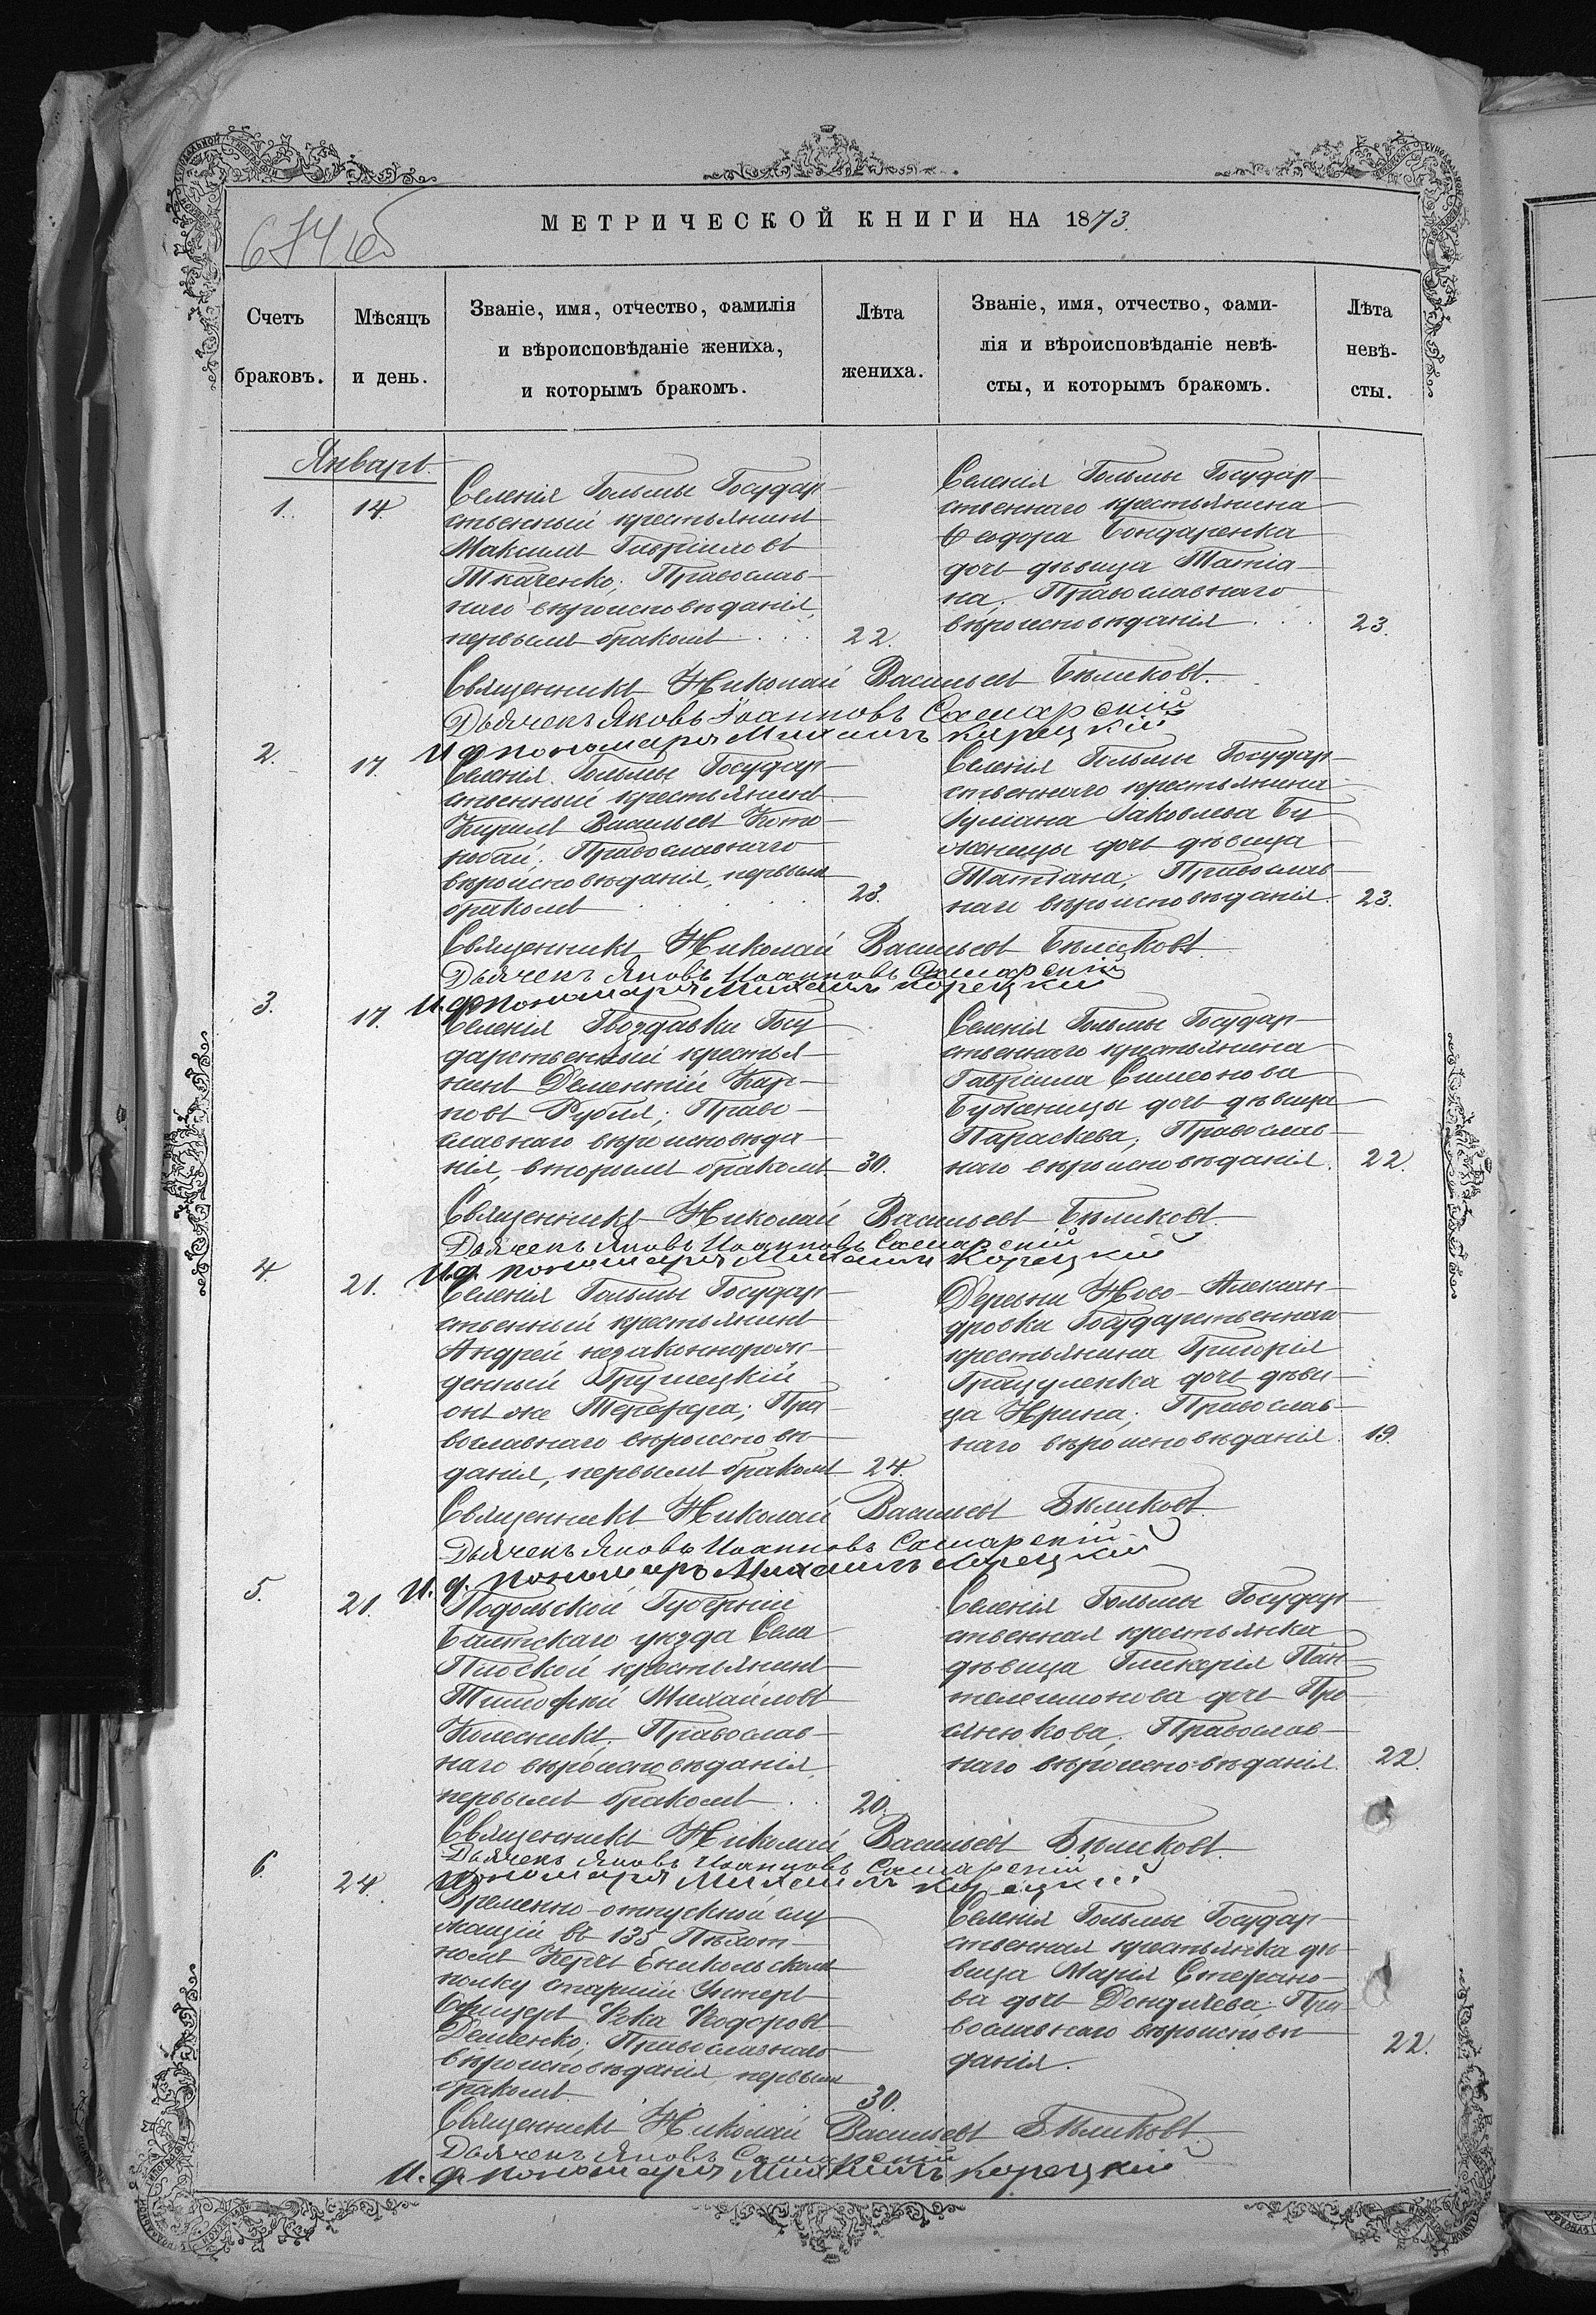 МЕТРИЧЕСКОЙ КНИГИ НА 1873.
674 об
Счетъ браковъ.
Мѣсяцъ и день.
Званіе, имя, отчество, фамилія
и вѣроисповѣданіе жениха,
и которымъ бракомъ.
Лѣта
жениха.
Званіе, имя, отчество, фами-
лія и вѣроисповѣданіе невѣ-
сты, и которымъ бракомъ.
Лѣта
невѣ-
сты.
Январь
1. 14.
Селенія Гольмы Государ
ственный крестьянинъ
Максимъ Гавріиловъ
Ткаченко; Православ-
наго вѣроисповѣданія,
первымъ бракомъ
22.
Селенія Гольмы Государ
ственнаго крестьянина
Ѳеодора Бондаренка
дочь дѣвица Татіа-
на; Православнаго
вѣроисповѣданія
23.
Священникъ Николай Васильевъ Бѣликовъ.
Дьячекъ Яковъ Іоанновъ Самарскій
И. д. пономаря Михаилъ Корецкій
2. 17.
Селенія Гольмы Государ-
ственный крестьянинъ
Кирилъ Васильевъ
Православнаго
вѣроисповѣданія, первымъ
бракомъ
23.
Селенія Гольмы Государ
ственнаго крестьянина
Іуліана Іаковлева Бу
женицы дочь дѣвица
Татіана; Православ
наго вѣроисповѣданія.
23.
Священникъ Николай Васильевъ Бѣликовъ
Дьячекъ Яковъ Иоанновъ Самарскій
И. д. пономаря Михаилъ Корецкій
3. 17.
Селенія Гвоздавки Госу
дарственный крестья
нинъ Дементій Кар-
повъ Рубля; Право-
славнаго вѣроисповѣда-
нія, вторымъ бракомъ
30.
Селенія Гольмы Государ-
ственнаго крестьянина
Гавріила Симеонова
Буженицы дочь дѣвица
Параскева; Православ-
наго вѣроисповѣданія.
22.
Священникъ Николай Васильевъ Бѣликовъ
Дьячекъ Яковъ Иоанновъ Самарскій
И. д. пономаря Михаилъ Корецкій
4. 21.
Селенія Гольмы Государ
ственный крестьянинъ
Андрей незаконнорож-
денный Грушецкій
онъ же Пра
вославнаго вѣроисповѣ-
данія, первымъ бракомъ
24.
Деревни Ново-Алексан-
дровки Государственнаго
крестьянина Григорія
Грицуленка дочь дѣви-
ца Ирина; Православ-
наго вѣроисповѣданія
19.
Священникъ Николай Васильевъ Бѣликовъ
Дьячекъ Яковъ Иоанновъ Самарскій
И. д. пономаря Михаилъ Корецкій
5. 21.
Подольской Губерніи
Балтскаго уѣзда Села
Плоской крестьянинъ
Тимоѳей Михайловъ
Колесникъ; Православ-
наго вѣроисповѣданія,
первымъ бракомъ
20.
Селенія Гольмы Государ
ственная крестьянка
дѣвица Гликерія Пан-
телеимонова дочь
Православ-
наго вѣроисповѣданія.
22.
Священникъ Николай Васильевъ Бѣликовъ.
Дьячекъ Яковъ Иоанновъ Самарскій
пономаря Михаилъ Корецкій
6. 24.
Временно-отпускной слу
жащій въ 135 Пѣхот-
номъ Керчь Еникольскомъ
полку старшій Унтеръ
Офицеръ Ѳока Ѳеодоровъ
Демченко; Православнаго
вѣроисповѣданія, первымъ
бракомъ
30.
Селенія Гольмы Государ-
ственная крестьянка дѣ-
вица Марія Стефано-
ва дочь Дондичева; Пра
вославнаго вѣроисповѣ-
данія.
22.
Священникъ Николай Васильевъ Бѣликовъ.
Дьячекъ Яковъ Самарскій
И. д. пономаря Михаилъ Корецкій